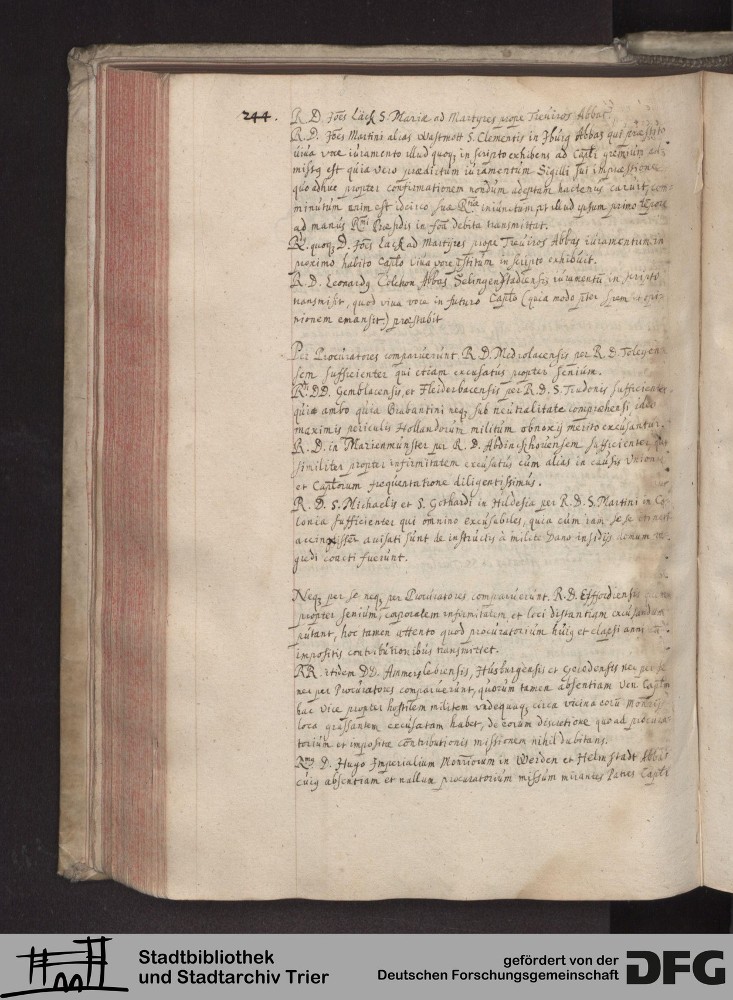 244.
R. D. Joes Läck S. Mariæ ad Martyres prope Treuiros Abbas.
R. D. Joes Martini alias S. Clementis in Jburg Abbas qui præstito
uiua voce iuramento illud quoq; in scripto exhibens ad Capli gremium
missq est quia vero prædictum iuramentum Sigilli sui impræssione
quo adhuc propter confirmationem nondum adeptam hactenus caruit
minutum enim est idcirco suæ Rmæ iniunctum vt illud ipsum primo
ad manus Rmi Præsidis in foa debita transmittat.
R. quoq; D. Joes Lack ad Martyres prope Treuiros Abbas iuramentum in
proximo habito Caplo viua voce in scripto exhibuit.
R. D. Leonardq Colchon Abbas Selingenstadiensis iuramentu in scripto
transmisit, quod viua voce in futuro Caplo (quia modo pter
nionem emansit) præstabit
Per Procuratores comparuerunt R. D. Medrolacensis per R. D. Toleyen
sem sufficienter qui etiam excusatus propter senium.
RR DD. Gemblacensis, et Fleiderbacensis per R. D. S. Trudonis sufficienter
quia ambo quia Brabantini neq; sub neutralitate comprehensi ideo
maximis periculis Hollandorum militum obnoxij merito excusantur.
R. D. in Marienmünster per R. D. Abdinschouensem sufficienter
similiter propter infirmitatem excusatus cum alias in causis Unionis
et Caplorum frequentatione diligentissimus.
R. D. S. Michaelis et S. Gothardi in Hildesia per R. D. S. Martini in Co
lonia sufficienter qui omnino excusabiles, quia cum iam se se
auisati sunt de instructis à milite Dano insidijs domum re
gredi coacti fuerunt.
Neq; per se neq; per Procuratores comparuerunt. R. D. Effordiensis
propter senium, corporalem infirmitatem, et loci distantiam excusandum
putant, hoc tamen attento quod procuratorium huiq et elapsi anni
impositis contributionibus transmittet.
RR. itidem DD. Ammerslebiensis, Husburgensis et nec per se
nec per Procuratores comparuerunt, quorum tamen absentiam Ven. Caplm
hac vice propter hostilem militem vndequaq; circa vicina coru
loca grassantem excusatam habet, de eorum discretione quoad procura
torium et impositæ contributionis missionem nihil dubitans.
Rmq D. Hugo Imperialium Monriorum in Werden et Helmstadt Abbas
cuiq absentiam et nullum procuratorium missum mirantes Patres Capli
Stadtbibliothek
und Stadtarchiv Trier
gefördert von der
Deutschen Forschungsgemeinschaft
DFG